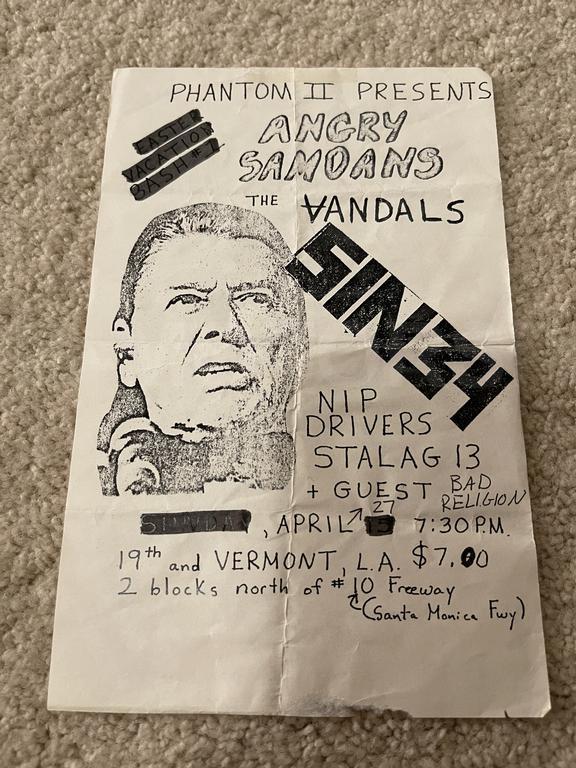 PHANTOM II PRESENTS
EASTER
VACATION
BASH #1
ANGRY
SAMOANS
THE VANDALS
SIN 34
NIP
DRIVERS
STALAG 13
+ GUEST BAD
RELIGION
SUNDAY, APRIL 27 15 7:30 P.M.
19th and VERMONT, L.A. $7.00
2 blocks north of #10 Freeway
(Santa Monica Fwy)